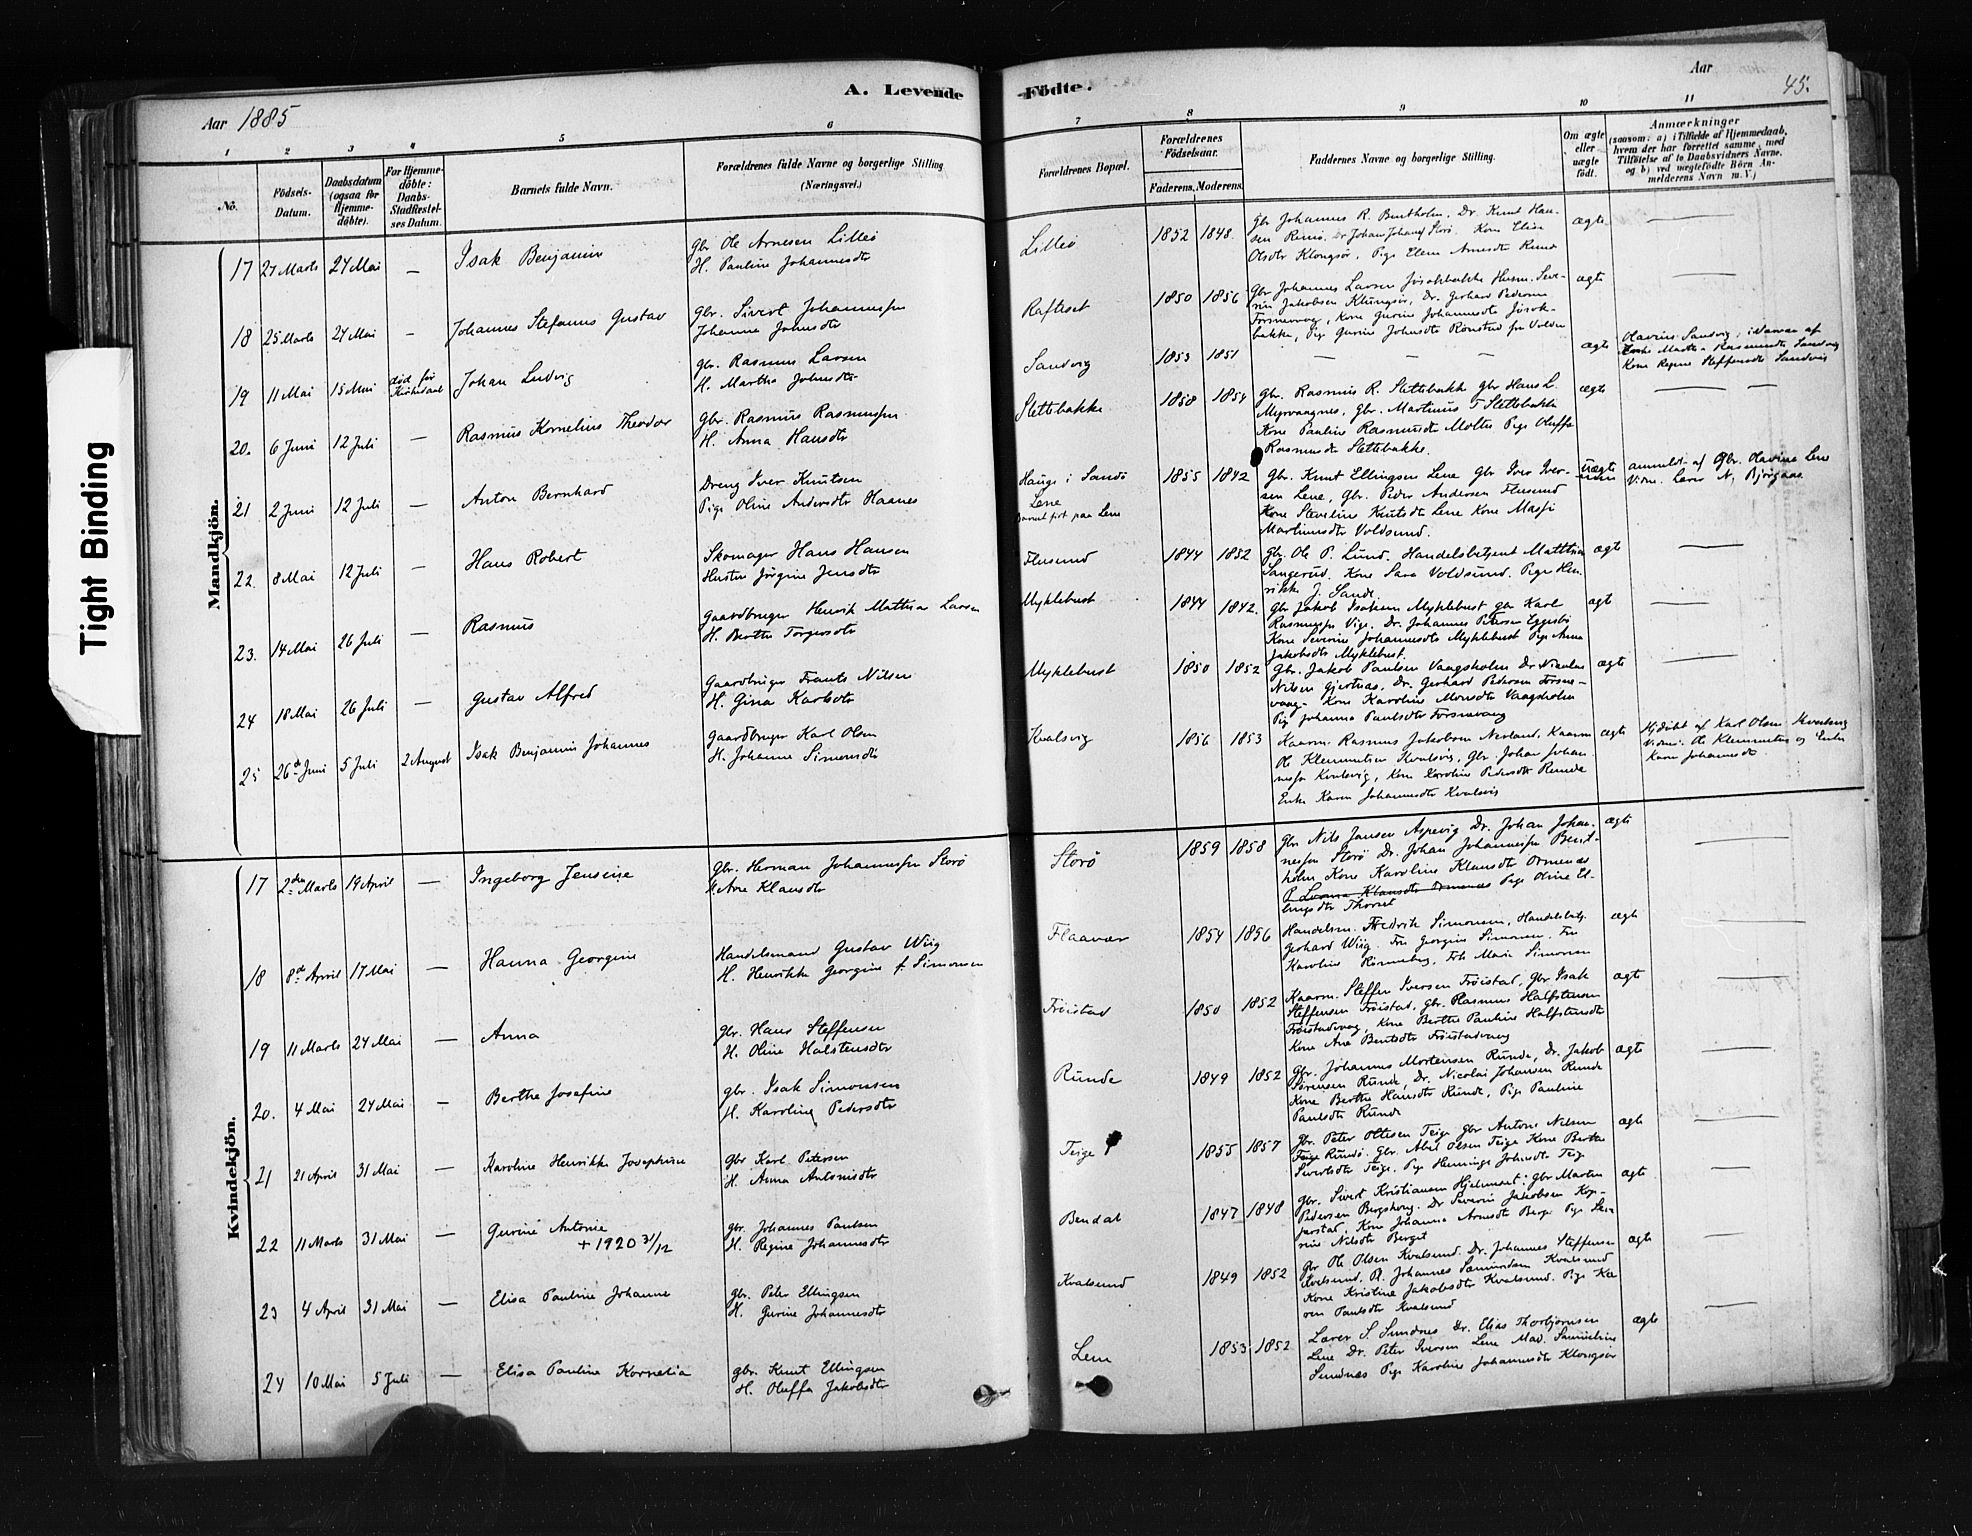 Tight Binding
Aar 1885
A. Levende Födte.
Aar
45.
1 2 3 4 5 6 7 8 9 10 11
No.
Födsels-Datum.
Daabsdatum (ogsaa for Hjemme-döbte).
For Hjemme-döbte: Daabs-Stadfæstel-ses Datum.
Barnets fulde Navn.
Forældrenes fulde Navne og borgerlige Stilling
(Næringsvei.)
Forældrenes Bopæl.
Forældrenes Födselsaar.
Faderens. Moderens.
Faddernes Navne og borgerlige Stilling.
Om ægte eller uægte födt.
Anmærkninger
(saasom: a) i Tilfælde af Hjemmedaab,
hvem der har forrettet samme, med
Tilföielse af to Daabsvidners Navne.
og b) ved uægtefödte Börn An-
melderens Navn m.V.)
Mandkjön.
17 27 Marts 24 Mai — Isak Benjamin
Gbr Ole Arnesen Lilleö
H. Pauline Johannesdtr
Lilleö 1852 1848.
Gbr Johannes R. Bentholm, Dr. Knut Han-
sen Remö, Dr Johan Johans Storö. Kone Elise
Olsdtr Klongsör, Pige Elen Arnesdtr Runde
ægte —
18 25 Marts 24 Mai — Johannes Stefanus Gustav
gbr. Sivert Johannessen
Johanne Johnsdtr
Rafteset 1850 1856
Gbr Johannes Larsen Jösokbakke Husm. Seve-
rin Jakobsen Klungsör, Dr. Gerhard Pedersen
Torsnesvaag, Kone Gurine Johannesdtr Jösok-
bakke, Pige Gurine Johnsdtr Rönstad fra Volden
ægte —
19 11 Mai 15 Mai död før Kirkedaab Johan Ludvig
gbr. Rasmus Larsen
H. Martha Johnsdtr
Sandvig 1853 1851 — — — ægte
Olavius Sandvig, i Nærvær af
Enke Marthe Rasmusdtr Sandvig
Kone Regine Steffensdtr Sandvig
20. 6 Juni 12 Juli — Rasmus Kornelius Theodor
Gbr. Rasmus Rasmussen
H. Anna Hansdtr
Slettebakke 1850 1854
Gbr. Rasmus R. Slettebakke Gbr Hans L.
Myrvaagnes, Gbr. Martinus T Slettebakke
Kone Pauline Rasmusdtr Moltu Pige Oluffa
Rasmusdtr Slettebakke.
ægte — —
21 2 Juni 12 Juli — Anton Bernhard
Dreng Iver Knutsen
Pige Oline Andersdtr Haanes
Hauge i Sandö
Lene
Barnet föt paa Lene
1855 1842
Gbr. Knut Ellingsen Lene Gbr Iver Iver-
sen Lene, Gbr. Peder Andersen Flusund
Kone Severine Knutsdtr Lene Kone Massi
Martinusdtr Voldsund.
uægte
anmeldt af Gbr. Olavius Lene
Vidne. Lærer N. Bjørgaas.
22. 8 Mai 12 Juli — Hans Robert
Skomager Hans Hansen
Hustru Jørgine Jensdtr
Flusund 1844 1852
Gbr. Ole P. Lund. Handelsbetjent Matthias
Sangerud. Kone Sara Voldsund. Pige Hen-
rikke J. Sande.
ægte —
23. 14 Mai 26 Juli — Rasmus
Gaardbruger Henrik Mathias Larsen
H. Berthe Torgersdtr
Myklebust 1844 1842.
Gbr Jakob Isaksen Myklebust gbr Karl
Rasmussen Vige, Dr. Johannes Petersen Eggesbö
Kone Severine Johannesdtr Myklebust Pige Anna
Jakobsdtr Myklebust.
ægte —
24 18 Mai 26 Juli — Gustav Alfred
Gaardbruger Frants Nilsen
H. Gina Karlsdtr
Myklebust 1850 1852
Gbr. Jakob Paulsen Vaagsholm Dr Nicolas
Nilsen Gjertnæs, Dr. Gerhard Pedersen Torsnes-
vaag. Kone Karoline Monsdtr Vaagsholm
Pig Johanna Paulsdtr Torsnesvaag
ægte —
25 26de Juni 5 Juli 2 August Isak Benjamin Johannes
Gaardbruger Karl Olsen
H. Johanne Simonsdtr
Kvalsvig 1856 1853
Kaarm. Rasmus Jakobsen Nerland, Kaarm
Ole Klemmetsen Kvalsvig, Gbr. Johan Johan-
nessen Kvalsvig, Kone Karoline Pedersdtr Runde
Enke Karen Johannesdtr Kvalsvig
ægte
Hjdöbt af Karl Olsen Kvalsvig
Vidne: Ole Klemmetsen og Enke
Karen Johannesdtr
Kvindekjön.
17 2den Marts 19 April — Ingeborg Jensine
Gbr. Herman Johannessen Storö
H Ane Klausdtr
Storö 1859 1858
Gbr Nils Jansen Aspevig Dr. Johan Johan-
nessen Storö Dr. Johan Johannessen Bent-
holm Kone Karoline Klausdtr Ormenæs
P Lovina Klausdtr Ormenes Pige Oline El-
lingsdtr Thorset
ægte —
18 8de April 17 Mai — Hanna Georgine
Handelsmand Gustav Wiig
H. Henrikke Georgine f. Simonsen
Flaavær 1854 1856
Handelsm. Fredrik Simonsen, Handelsbetj.
Gerhard Wiig. Fru Georgine Simonsen. Fru
Karoline Rønneberg, Frk Marie Simonsen
ægte —
19 11 Marts 24 Mai — Anna
gbr. Hans Steffensen
H. Oline Halstensdtr
Fröistad 1850 1852
Kaarm. Steffen Iversen Fröistad, Gbr. Isak
Steffensen Fröistad, gbr. Rasmus Halfstensen
Fröistadvaag, Kone Berthe Pauline Halfstensdtr
Kone Ane Bentsdtr Fröistadvaag
ægte —
20. 4 Mai 24 Mai — Berthe Josefine
gbr. Isak Simonsen
H. Karoline Pedersdtr
Runde 1849 1852
Gbr. Johannes Mortensen Runde, Dr. Jakob
Sörensen Runde, Dr. Nicolai Johansen Runde
Kone Berthe Hansdtr Runde, Pige Pauline
Paulsdtr Runde
ægte —
21 21 April 31 Mai — Karoline Henrikke Josephine
gbr Karl Petersen
H. Anna Antonisdtr
Teige 1855 1857
Gbr. Peter Ottesen Teige Gbr Antone Nilsen
Teige Rundö. Gbr. Abel Olsen Teige Kone Berthe
Sivertsdtr Teige. Pige Henninge Johnsdtr Teig
ægte —
22 11 Marts 31 Mai — Gurine Antonie
+ 1920 31/12
gbr. Johannes Paulsen
H. Regine Johannesdtr
Bendal 1847 1848
Gbr. Sivert Kristiansen Hjelmeset: gbr Martin
Pedersen Bergshoug. Dr Severin Jakobsen Kop-
parstad, Kone Johanna Arnesdtr Berge Pige Se-
rine Nilsdtr Berget
ægte —
23 4 April 31 Mai — Elisa Pauline Johanne
gbr. Peter Ellingsen
H. Gurine Johannesdtr
Kvalsund 1849 1852
Gbr Ole Olsen Kvalsund. Dr. Johannes Steffensen
Kvalsund, Dr. Johannes Samundsen Kvalsund
Kone Kristine Jakobsdtr Kvalsund. Pige Ka-
ren Paulsdtr Kvalsund
ægte —
24 10 Mai 5 Juli — Elisa Pauline Kornelia
gbr. Knut Ellingsen
H. Oluffa Jakobsdtr
Lene 1853 1852
Lærer S. Sundnes Dr. Elias Thorbjørnsen
Lene Dr. Peter Iversen Lene Mad. Samueline
Sundnæs Pige Karoline Johannesdtr Klongsör
ægte —